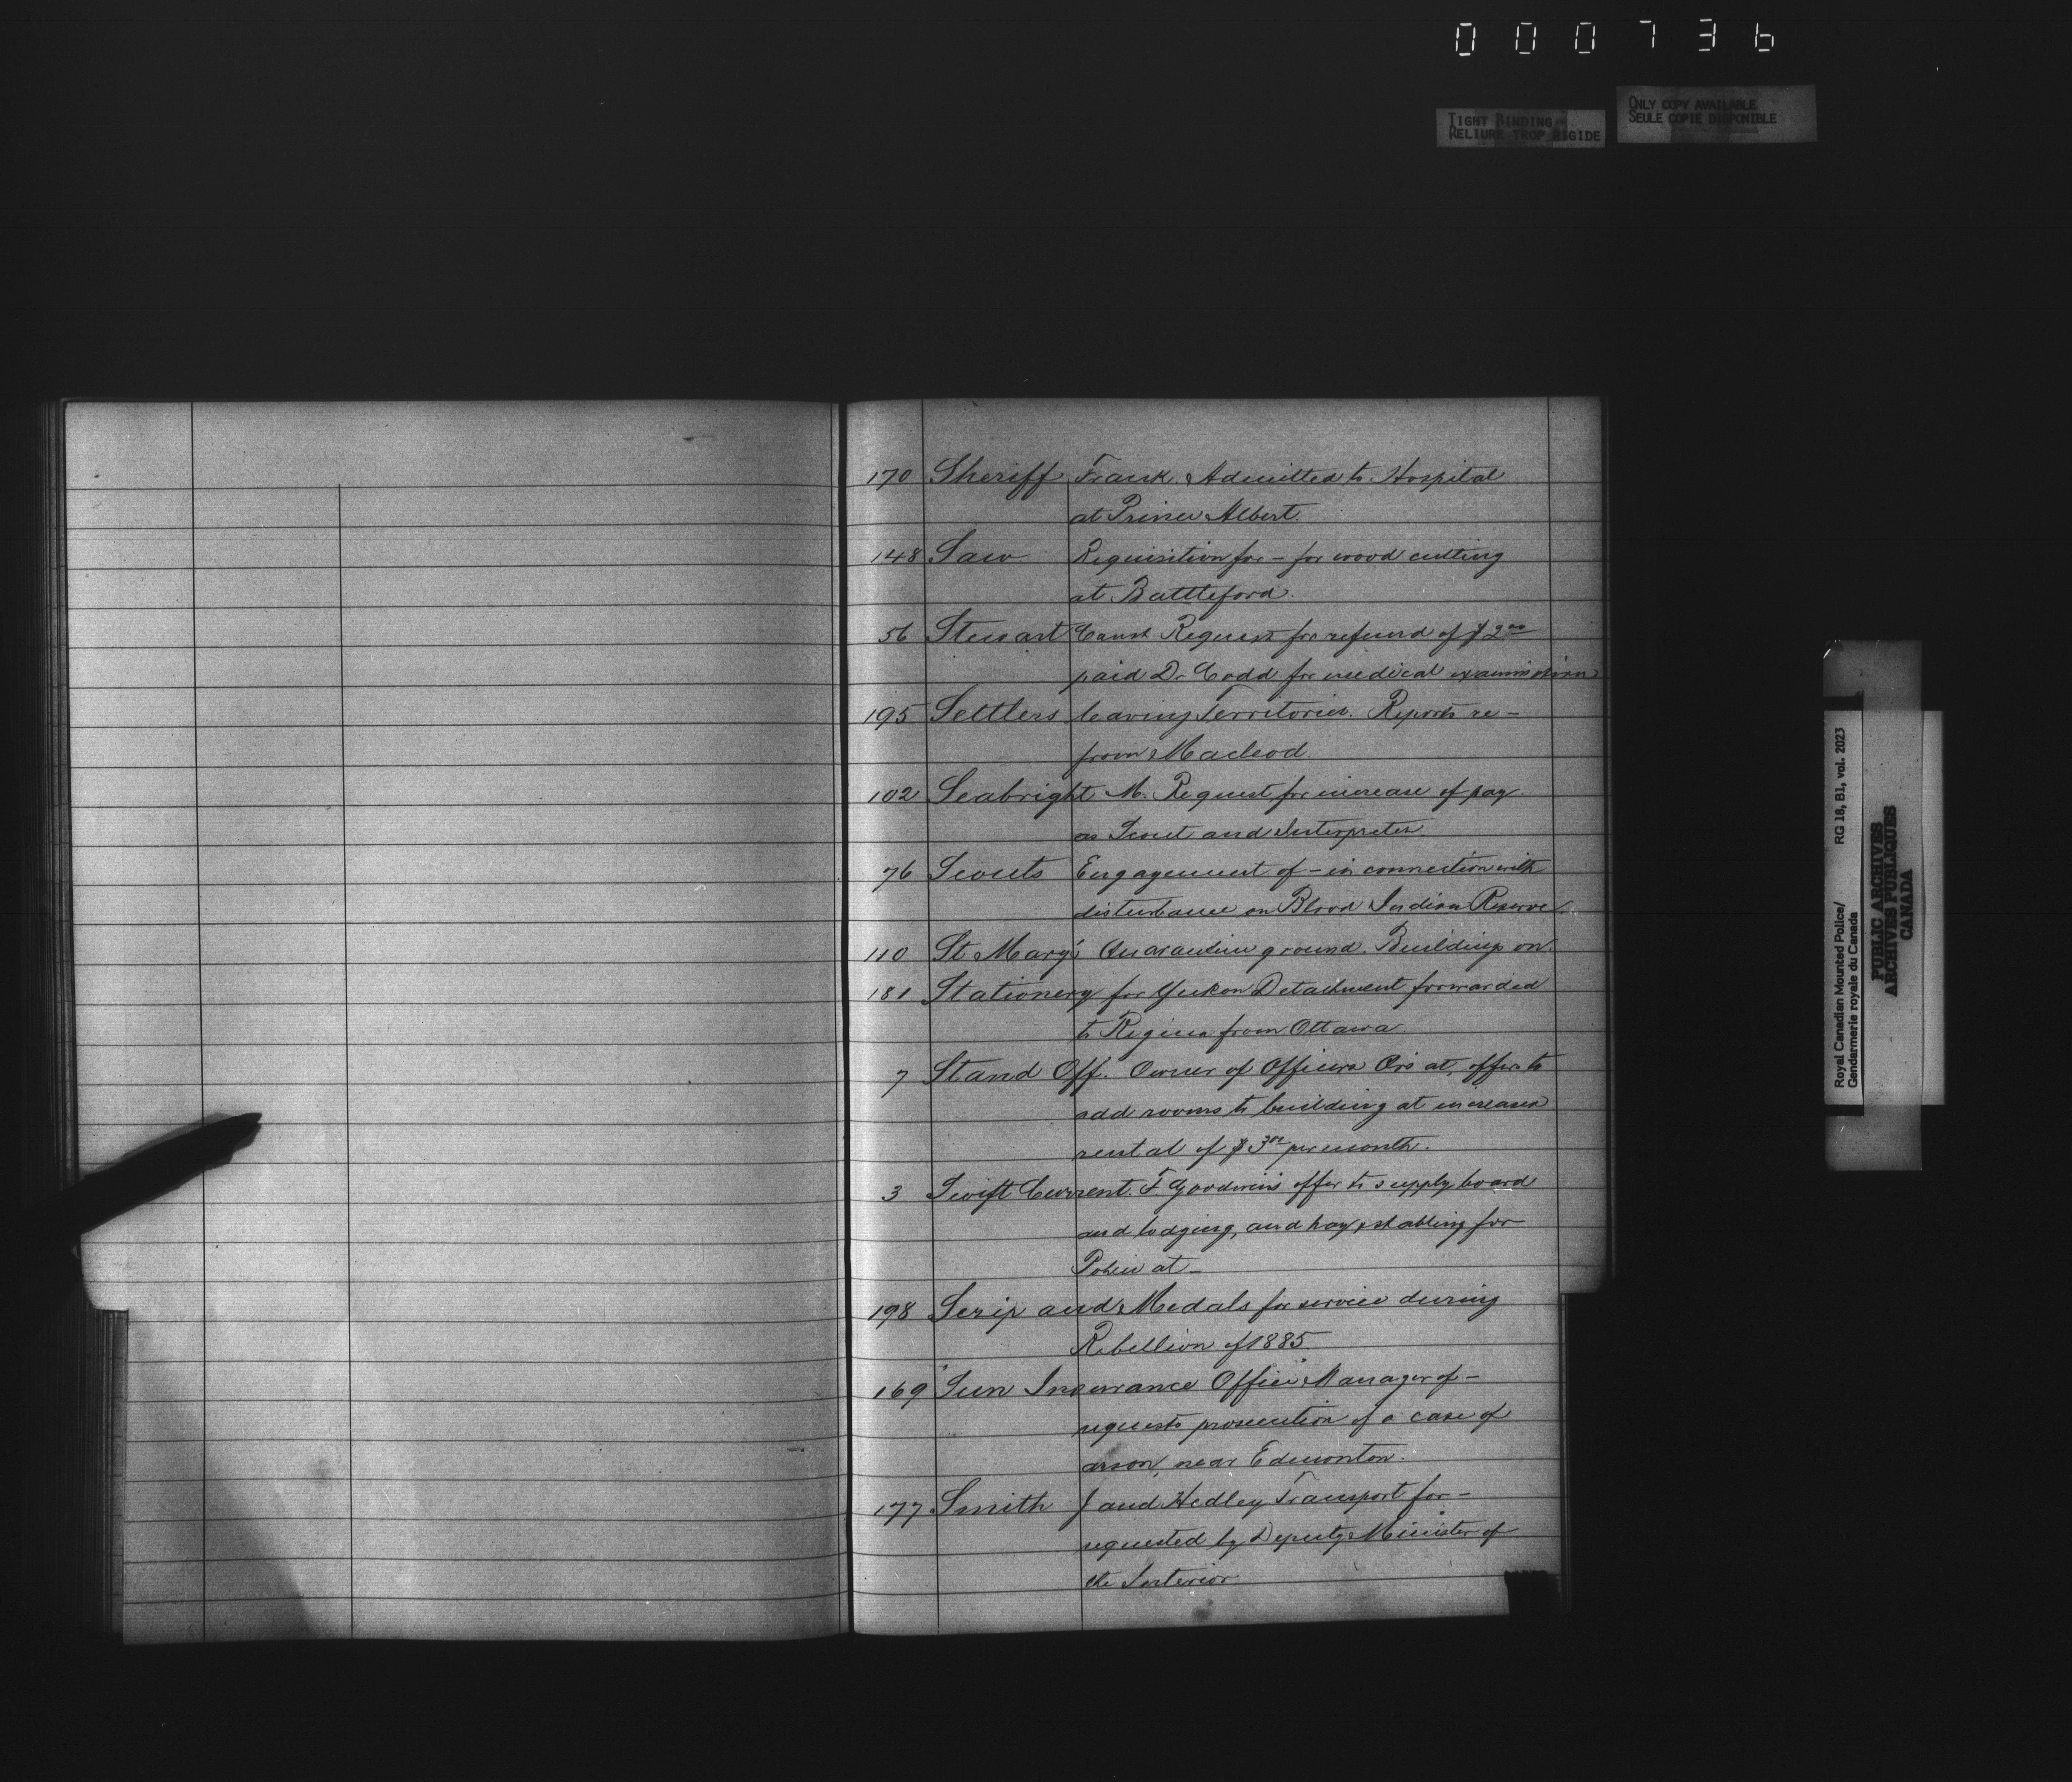 000736
TIGHT BINDING
RELIURE TROP RIGIDE
ONLY COPY AVAILABLE
SEULE COPIE DISPONIBLE
170 Sheriff Frank. Admitted to Hospital
at Prince Albert.
148 Saw Requisition for - for wood cutting
at Battleford.
56 Stewart Const Request for refund of $2.00
paid Dr Codd for medical examination
195 Settlers leaving Territories. Reports re -
from Macleod
102 Seabright M. Request for increase of pay
as Scout and Interpreter.
76 Scouts Engagement of - in connection with
disturbance on Blood Indian Reserve.
110 St Mary's Quarantine ground. Buildings on.
181 Stationery for Yukon Detachment forwarded
to Regina from Ottawa.
7 Stand Off. Owner of Officers Qrs at, offers to
add rooms to building at increased
rental of $3.00 per month.
3 Swift Current. F. Goodwin's offer to supply board
and lodging, and hay & stabling for
Police at -
198 Scrip and Medals for service during
Rebellion of 1885.
169 "Sun Insurance Office" Manager of -
requests prosecution of a case of
arson, near Edmonton.
177 Smith J and Hedley Transport for -
requested by Deputy Minister of
the Interior
Royal Canadian Mounted Police/ RG 18, B1, vol. 2023
Gendarmerie royale du Canada
PUBLIC ARCHIVES
ARCHIVES PUBLIQUES
CANADA